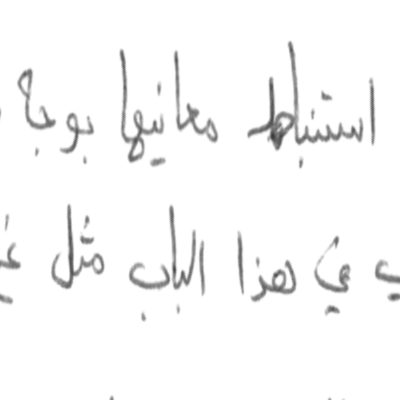 استنباط معانيها بوجا
في هذا الباب مثل